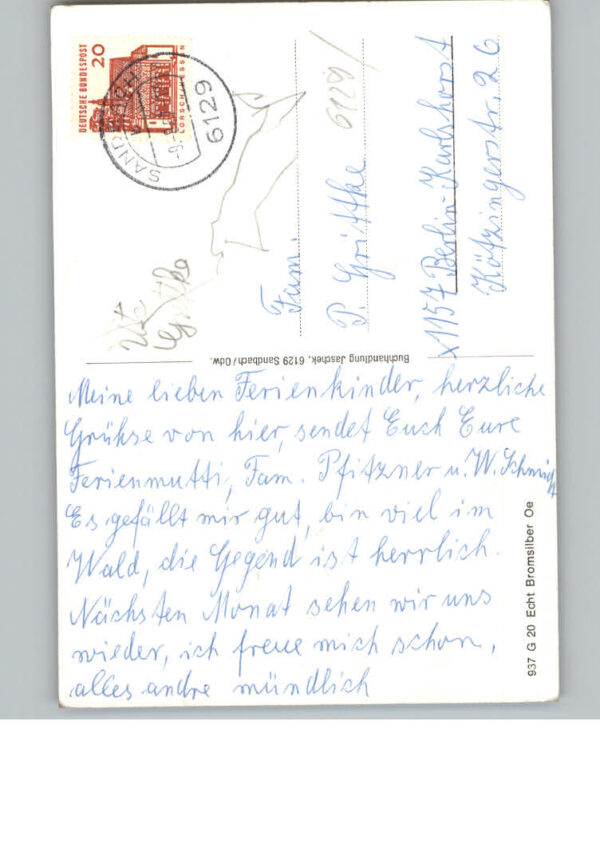 Meine lieben Ferienkinder, herzliche
Grühse von hier, sendet Euch Eure
Ferienmutti, Fam. Pfitzner u. W. Schmidt
Es gefällt mir gut, bin viel im
Wald, die Gegend ist herrlich.
Nächsten Monat sehen wir uns
wieder, ich freue mich schon,
alles andre mündlich
Fam.
P. Grittke
x1157 Berlin-Karlshorst
Kötzingerstr. 26
6129/
DEUTSCHE BUNDESPOST
20
LORSCH HESSEN
SANDBACH
6129
Buchhandlung Jaschek, 6129 Sandbach/Odw.
937 G 20 Echt Bromsilber Oe